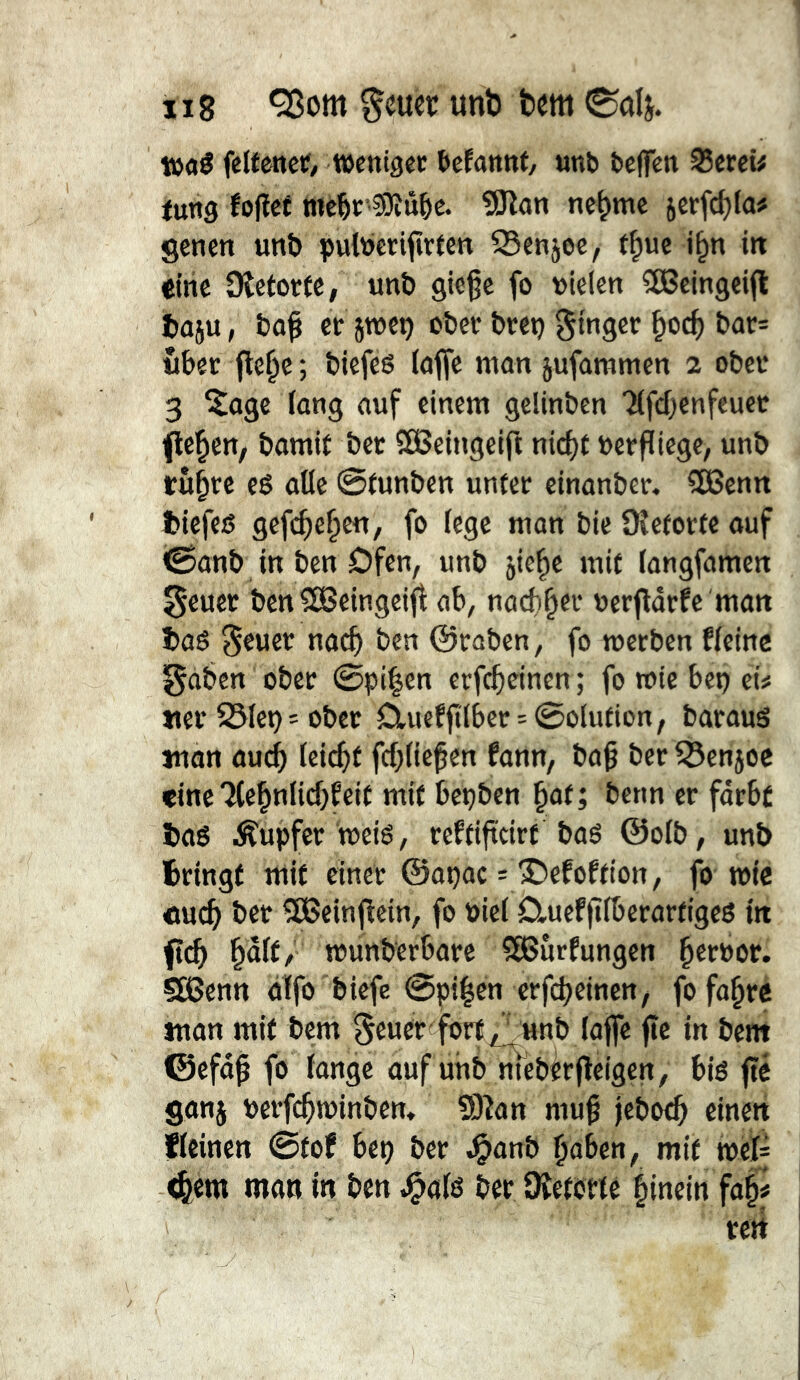 118 Vom Feuer und dem Salz.
was seltener, weniger bekannt, und dessen Berei-
tung kostet mehr Mühe. Man nehme zerschla-
genen und pulverisirten Benzoe, thue ihn in
eine Retorte, und gieße so vielen Weingeist
dazu, daß er zwey oder drey Finger hoch dar-
über stehe; dieses lasse man zusammen 2 oder
3 Tage lang auf einem gelinden Aschenfeuer
stehen, damit der Weingeist nicht verfliege, und
rühre es alle Stunden unter einander. Wenn
dieses geschehen, so lege man die Retorte auf
Sand in den Ofen, und ziehe mit langsamen
Feuer den Weingeist ab, nachher verstärke man
das Feuer nach den Graden, so werden kleine
Faden oder Spitzen erscheinen; so wie bey ei-
ner Bley- oder Queksilber-Solution, daraus
man auch leicht schließen kann, daß der Benzoe
eine Aehnlichkeit mit beyden hat; denn er färbt
das Kupfer weis, rektificirt das Gold, und
bringt mit einer Gayac-Dekoktion, so wie
auch der Weinstein, so viel Queksilberartiges in
sich hält, wunderbare Würkungen hervor.
Wenn also diese Spitzen erscheinen, so fahre
man mit dem Feuer fort, und lasse sie in dem
Gefäß so lange auf und niedersteigen, bis sie
ganz verschwinden. Man muß jedoch einen
kleinen Stok bey der Hand haben, mit wel-
chem man in den Hals der Retorte hinein fah-
ren